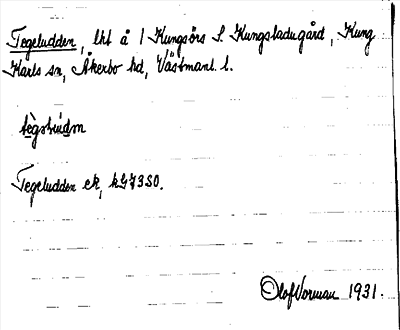 Tegeludden, lht å 1 Kungsörs S. Kungsladugård, Kung
Karls sn, Åkerbo hd, Västmanl. l.
Tegeludden ek, kG7350.
Olof Norman 1931.